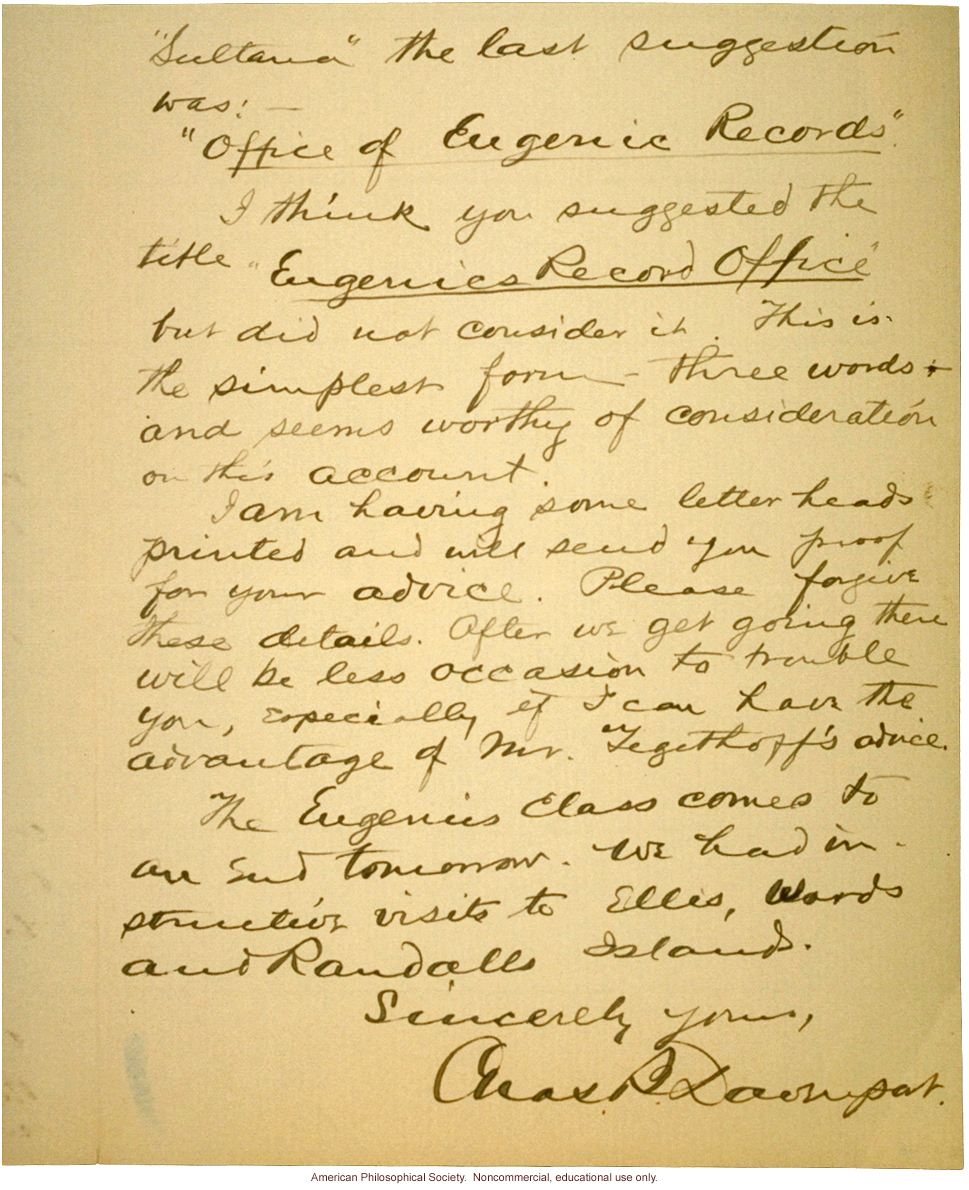 "Sultana" the last suggestion
was: —
"Office of Eugenic Records".
I think you suggested the
title "Eugenics Record Office"
but did not consider it. This is
the simplest form – three words –
and seems worthy of consideration
on this account.
I am having some letter heads
printed and will send you proof
for your advice. Please forgive
these details. After we get going there
will be less occasion to trouble
you, especially if I can have the
advantage of Mr. Tegethoff's advice.
The Eugenics Class comes to
an End tomorrow. We had in-
structive visits to Ellis, Wards
and Randalls Islands.
Sincerely yours,
Chas. B. Davenport.
American Philosophical Society. Noncommercial, educational use only.